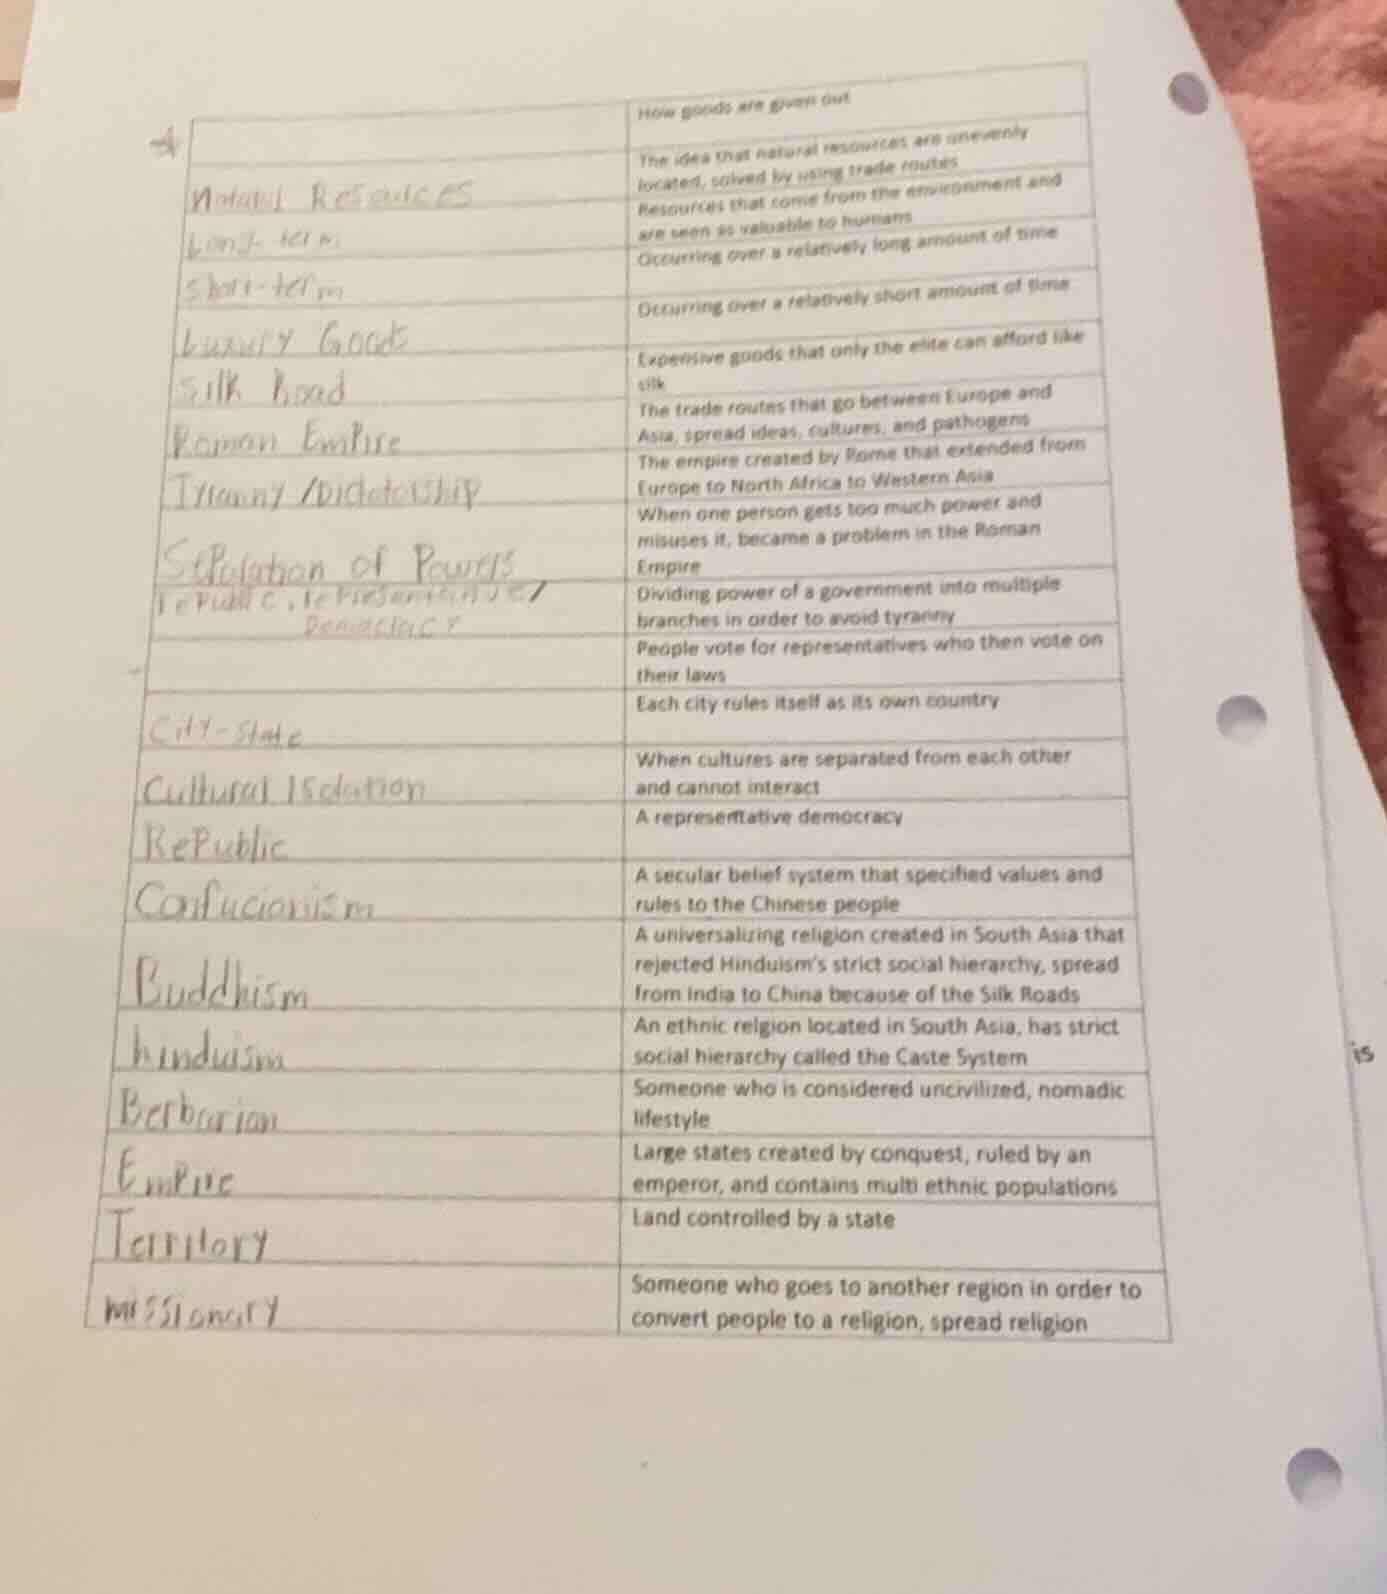 How goods are given out
The idea that natural resources are unevenly
located, solved by using trade routes
Natural Resources
Resources that come from the environment and
are seen as valuable to humans
Long-term
Occurring over a relatively long amount of time
Short-term
Occurring over a relatively short amount of time
Luxury Goods
Expensive goods that only the elite can afford like
silk
Silk Road
The trade routes that go between Europe and
Asia, spread ideas, cultures, and pathogens
Roman Empire
The empire created by Rome that extended from
Europe to North Africa to Western Asia
Tyranny /Dictatorship
When one person gets too much power and
misuses it, became a problem in the Roman
Empire
Separation of Powers
Dividing power of a government into multiple
branches in order to avoid tyranny
republic, representative/
Democracy
People vote for representatives who then vote on
their laws
Each city rules itself as its own country
City-State
When cultures are separated from each other
and cannot interact
Cultural Isolation
A representative democracy
Republic
A secular belief system that specified values and
rules to the Chinese people
Confucionism
A universalizing religion created in South Asia that
rejected Hinduism's strict social hierarchy, spread
from India to China because of the Silk Roads
Buddhism
An ethnic relgion located in South Asia, has strict
social hierarchy called the Caste System
hinduism
Someone who is considered uncivilized, nomadic
lifestyle
Berbarian
Large states created by conquest, ruled by an
emperor, and contains multi ethnic populations
Empire
Land controlled by a state
Territory
Someone who goes to another region in order to
convert people to a religion, spread religion
missionary
is